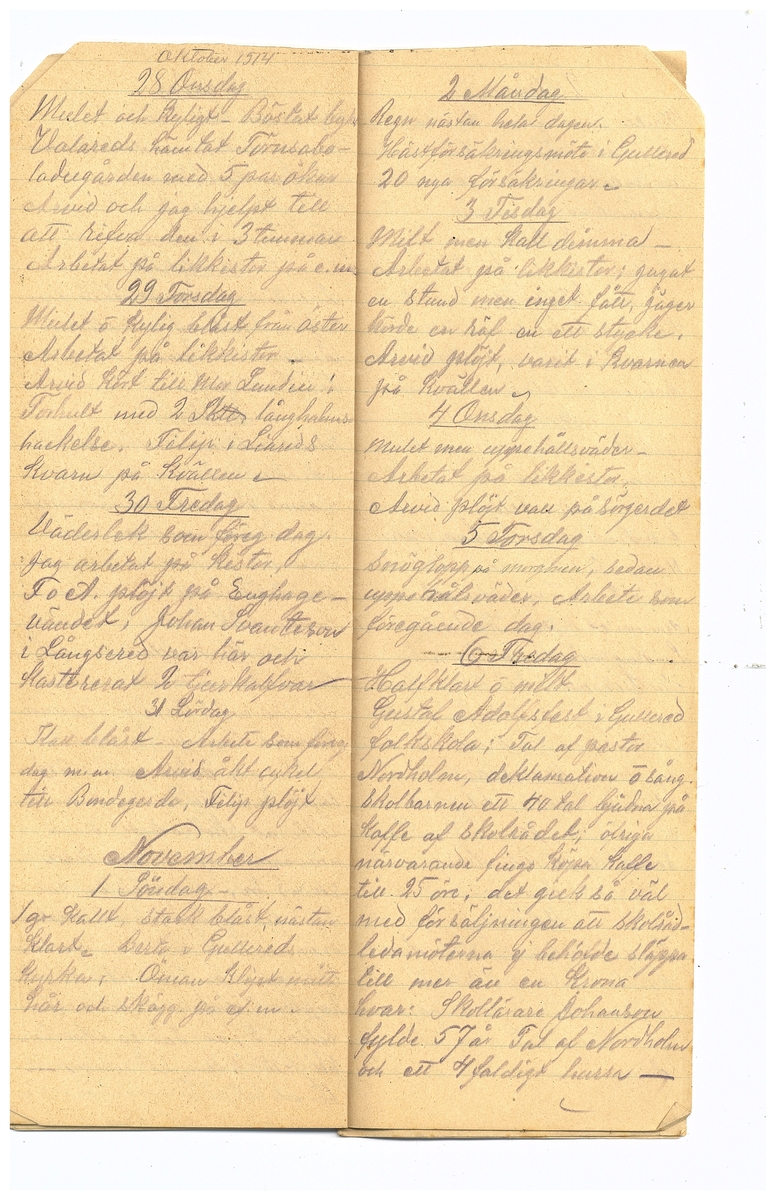 Oktober 1914
28 Onsdag
Mulet och kyligt – Böstat
Valareds hämtat Törnsabo-
ladugården med 5 par ökar
Arvid och jag hjelpt till
att rifva den i 3 timmar
Arbetat på likkistor på e.m
29 Torsdag
Mulet ö kylig blåst från öster
Arbetat på likkistor –
Arvid kört till Mor Lundin i
Torhult med 2 långhalms
hackelse. Filip i Liareds
kvarn på kvällen –
30 Fredag
Väderlek som föreg dag.
Jag arbetat på kistor
F o A. plöjt på Enghage-
vändet, Johan Svantesson
i Långsered var här och
kastrerat 2 tjurkalfvar
31 Lördag
blåst – Arbete som föreg
dag m.m. Arvid åkt cykel
till Bondegärde, Filip plöjt
November
1 Söndag –
1 gr kallt, stark blåst, nästan
klart – i Gullereds
kyrka; Öman klippt mitt
hår och skägg på ef.m.
2 Måndag
Regn nästan hela dagen.
Hästförsäkringsmöte i Gullered
20 nya försäkringar –
3 Tisdag
Milt men kall dimma –
Arbetat på likkistor; jagat
en stund men inget fått, Jäger
körde en räf en ett stycke.
Arvid plöjt, varit i kvarnen
på kvällen –
4 Onsdag
Mulet men uppehållsväder –
Arbetat på likkistor.
Arvid plöjt vall på
5 Torsdag
Snöglopp på morgonen, sedan
uppehålsväder, Arbete som
föregående dag.
6 Fredag
Halfklart ö milt
Gustaf Adolfsfest i Gullered
folkskola; Tal af pastor
Nordholm, deklamation ö sång.
skolbarnen ett 40 tal bjudna på
Kaffe af skolrådet; öfriga
närvarande fingo köpa kaffe
till 25 öre; det gick så väl
med försäljningen att skolråd-
ledamöterna ej behöfde släppa
till mer än en Krona
hvar: Skollärare Johanson
fylde 57 år Tal af Nordholm
och ett 4 faldigt hurra –